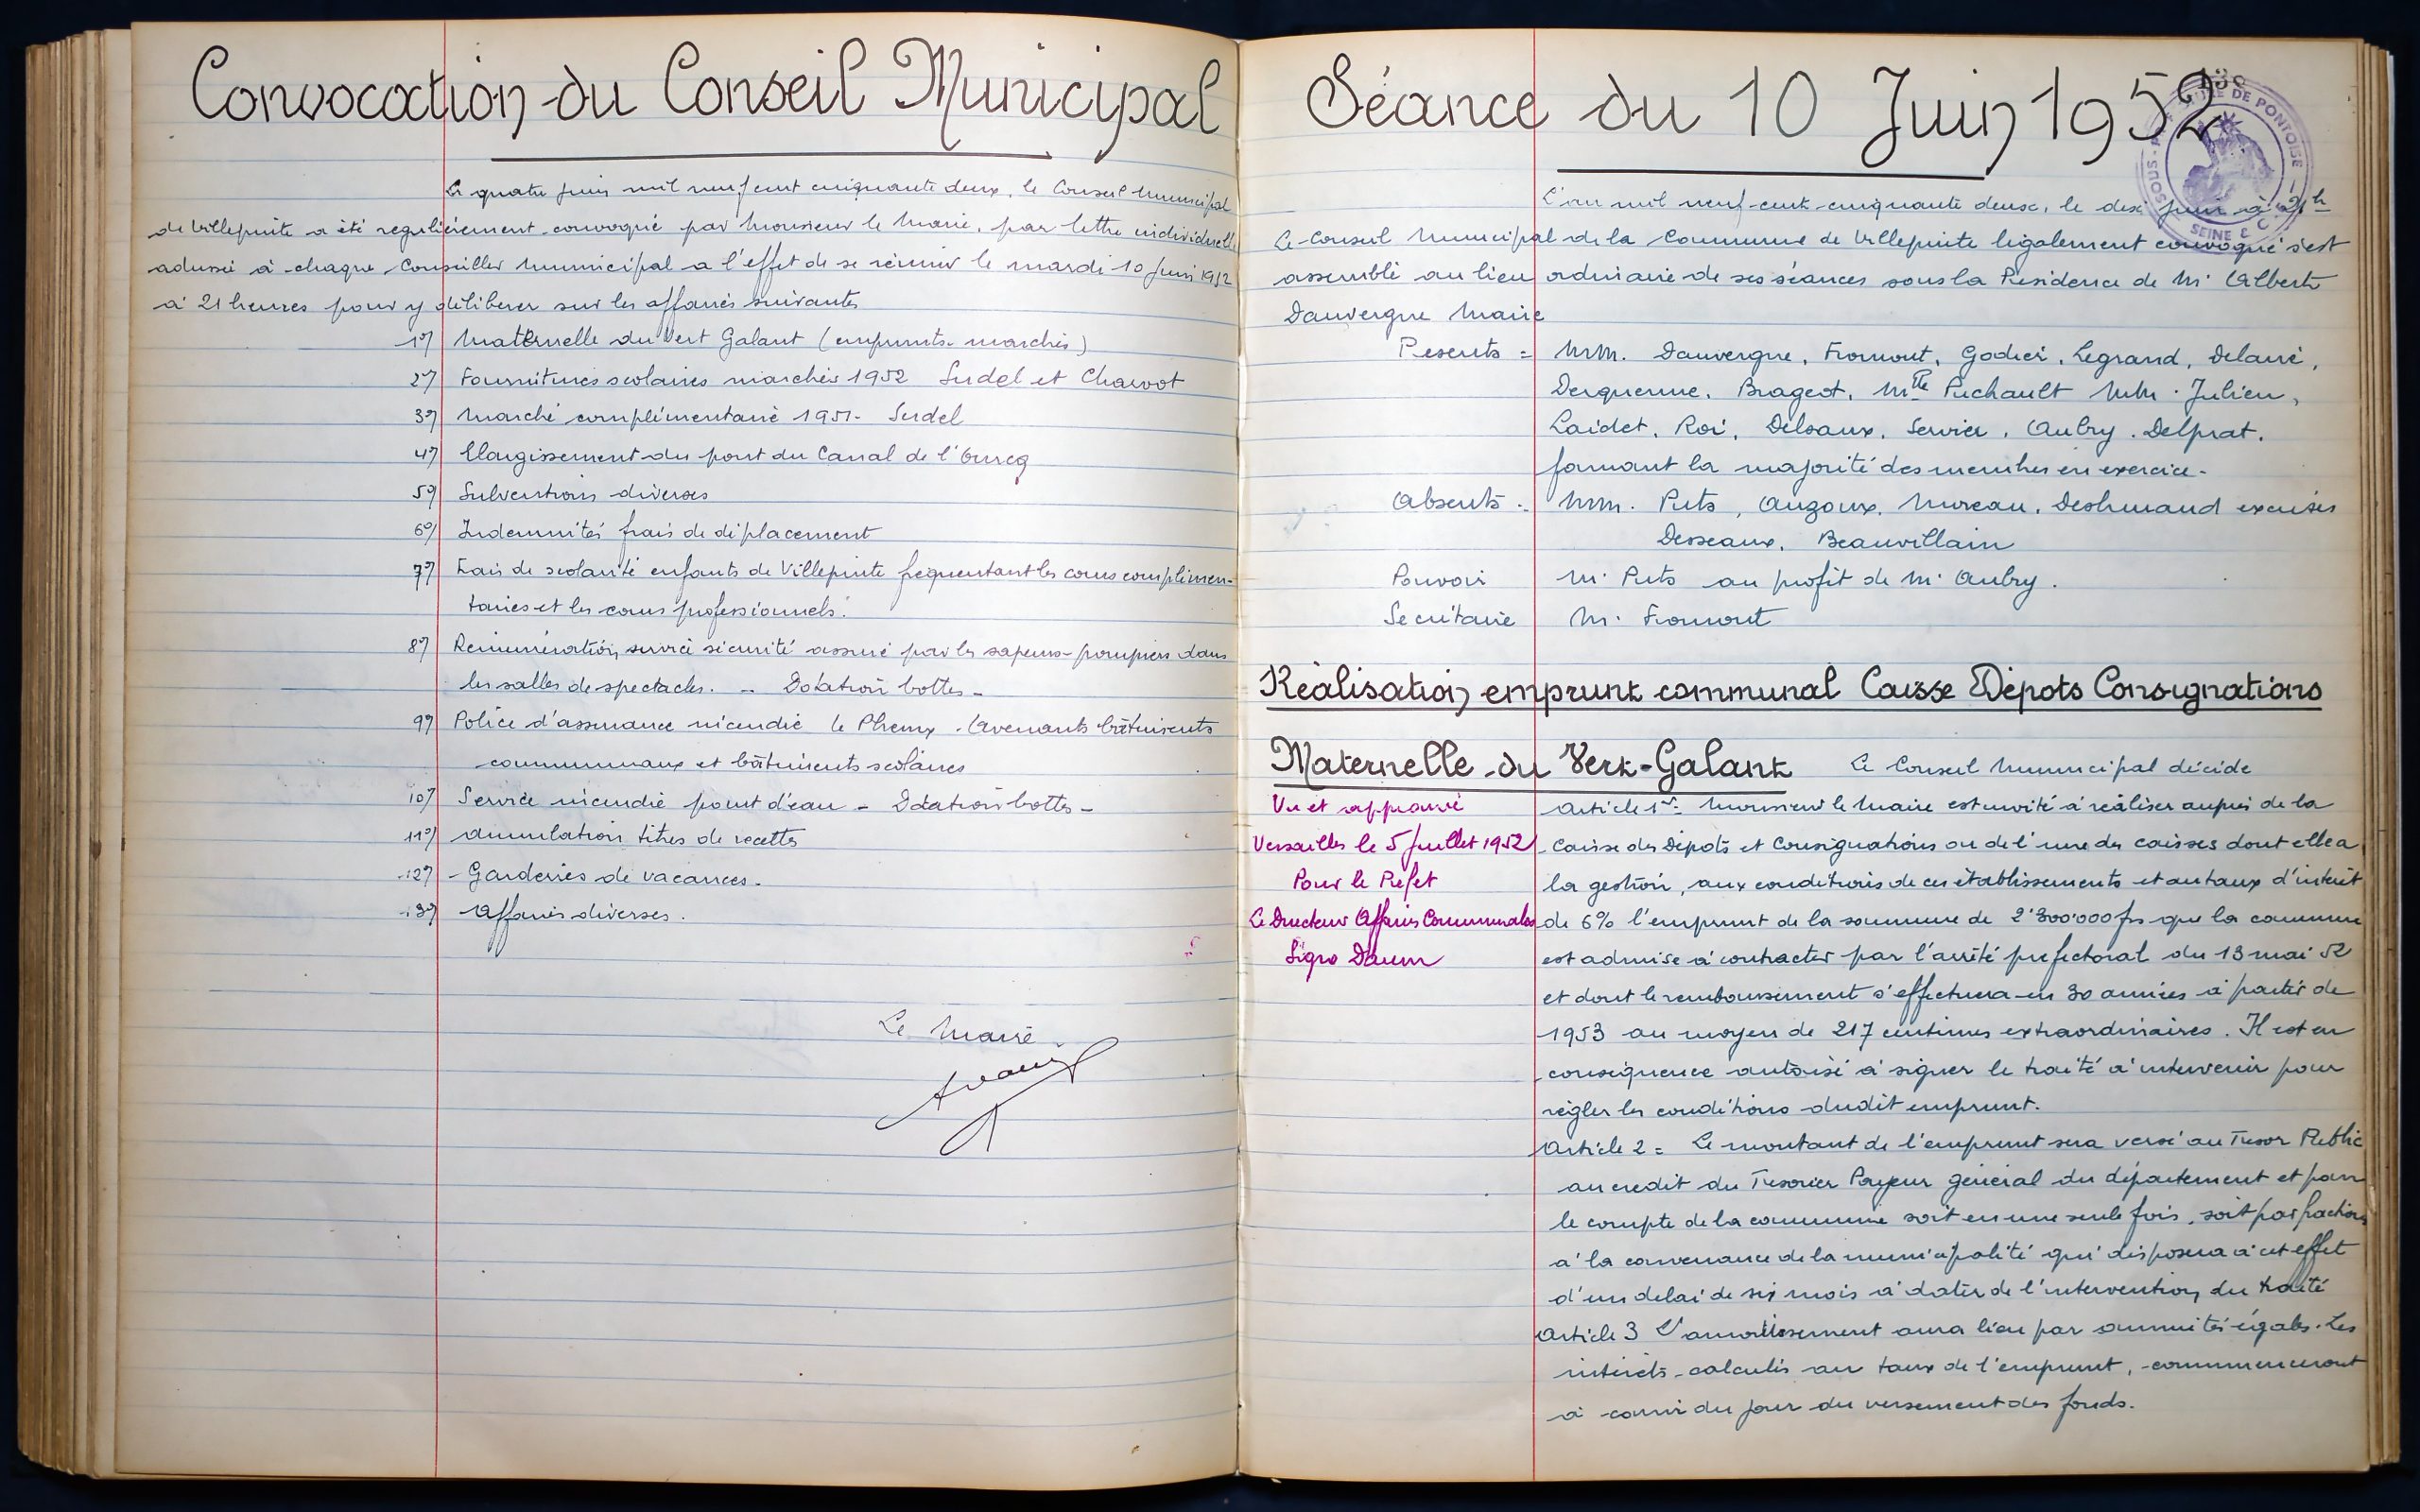 Convocation du Conseil Municipal
Le quatre juin mil neuf cent cinquante deux, le Conseil Municipal
de Villepinte a été regulièrement convoqué par Monsieur le Maire, par lettre individuelle
adressée à chaque Conseiller Municipal a l'effet de se réunir le mardi 10 Juin 1952
à 21 heures pour y délibérer sur les affaires suivantes
1°/ Maternelle du Vert Galant (emprunts - marchés)
2°/ Fournitures scolaires marchés 1952 Sudel et Charvot
3°/ Marché complémentaire 1951 - Sudel
4°/ Elargissement du pont du Canal de l'Ourcq
5°/ Subventions diverses
6°/ Indemnités frais de déplacement
7°/ Frais de scolarité enfants de Villepinte fréquentant les cours complémen-
taires et les cours professionnels.
8°/ Rémunération service sécurité assuré par les sapeurs-pompiers dans
les salles de spectacles. - Dotation bottes -
9°/ Police d'assurance incendie le Phenix - Avenants bâtiments
communaux et bâtiments scolaires
10°/ Service incendie point d'eau - Dotation bottes -
11°/ Annulation titres de recettes
12°/ - Garderies de vacances.
13°/ Affaires diverses.
Le Maire
Séance du 10 Juin 1952
138
SOUS-PRÉFECTURE DE PONTOISE
SEINE & O
L'an mil neuf cent cinquante deux, le dix juin à 21h
Le Conseil Municipal de la Commune de Villepinte légalement convoqué s'est
assemblé au lieu ordinaire de ses séances sous la Présidence de M. Albert
Dauvergne Maire
Présents = MM. Dauvergne, Fromont, Godier, Legrand, Delaire,
Derquenne, Brageot, Mlle Pechault MM. Julien,
Laidet, Roi, Delsaux, Servier, Aubry, Delprat.
formant la majorité des membres en exercice.
Absents = MM. Puts, Auzoux, Mureau, Deshmand excusés
Desseaux, Beauvillain
Pouvoir M. Puts au profit de M. Aubry.
Secrétaire M. Fromont
Réalisation emprunt communal Caisse Dépots Consignations
Maternelle du Vert-Galant Le Conseil Municipal décide
Vu et approuvé
Versailles le 5 Juillet 1952
Pour le Préfet
Le Directeur Affaires Communales
Signé Daum
Article 1er = Monsieur le Maire est invité à réaliser auprès de la
Caisse des Dépots et Consignations ou de l'une des caisses dont elle a
la gestion, aux conditions de ces établissements et au taux d'intérêt
de 6% l'emprunt de la somme de 2'800'000 frs que la commune
est admise à contracter par l'arrêté préfectoral du 13 mai 52
et dont le remboursement s'effectuera en 30 années à partir de
1953 au moyen de 217 centimes extraordinaires. Il est en
conséquence autorisé à signer le traité à intervenir pour
régler les conditions dudit emprunt.
Article 2 = Le montant de l'emprunt sera versé au Trésor Public
au crédit du Trésorier Payeur général du département et pour
le compte de la commune soit en une seule fois, soit par fractions
à la convenance de la municipalité qui disposera à cet effet
d'un delai de six mois à dater de l'intervention du traité
Article 3 L'amortissement aura lieu par annuités égales. Les
intérêts calculés au taux de l'emprunt, commenceront
à courir du jour du versement des fonds.